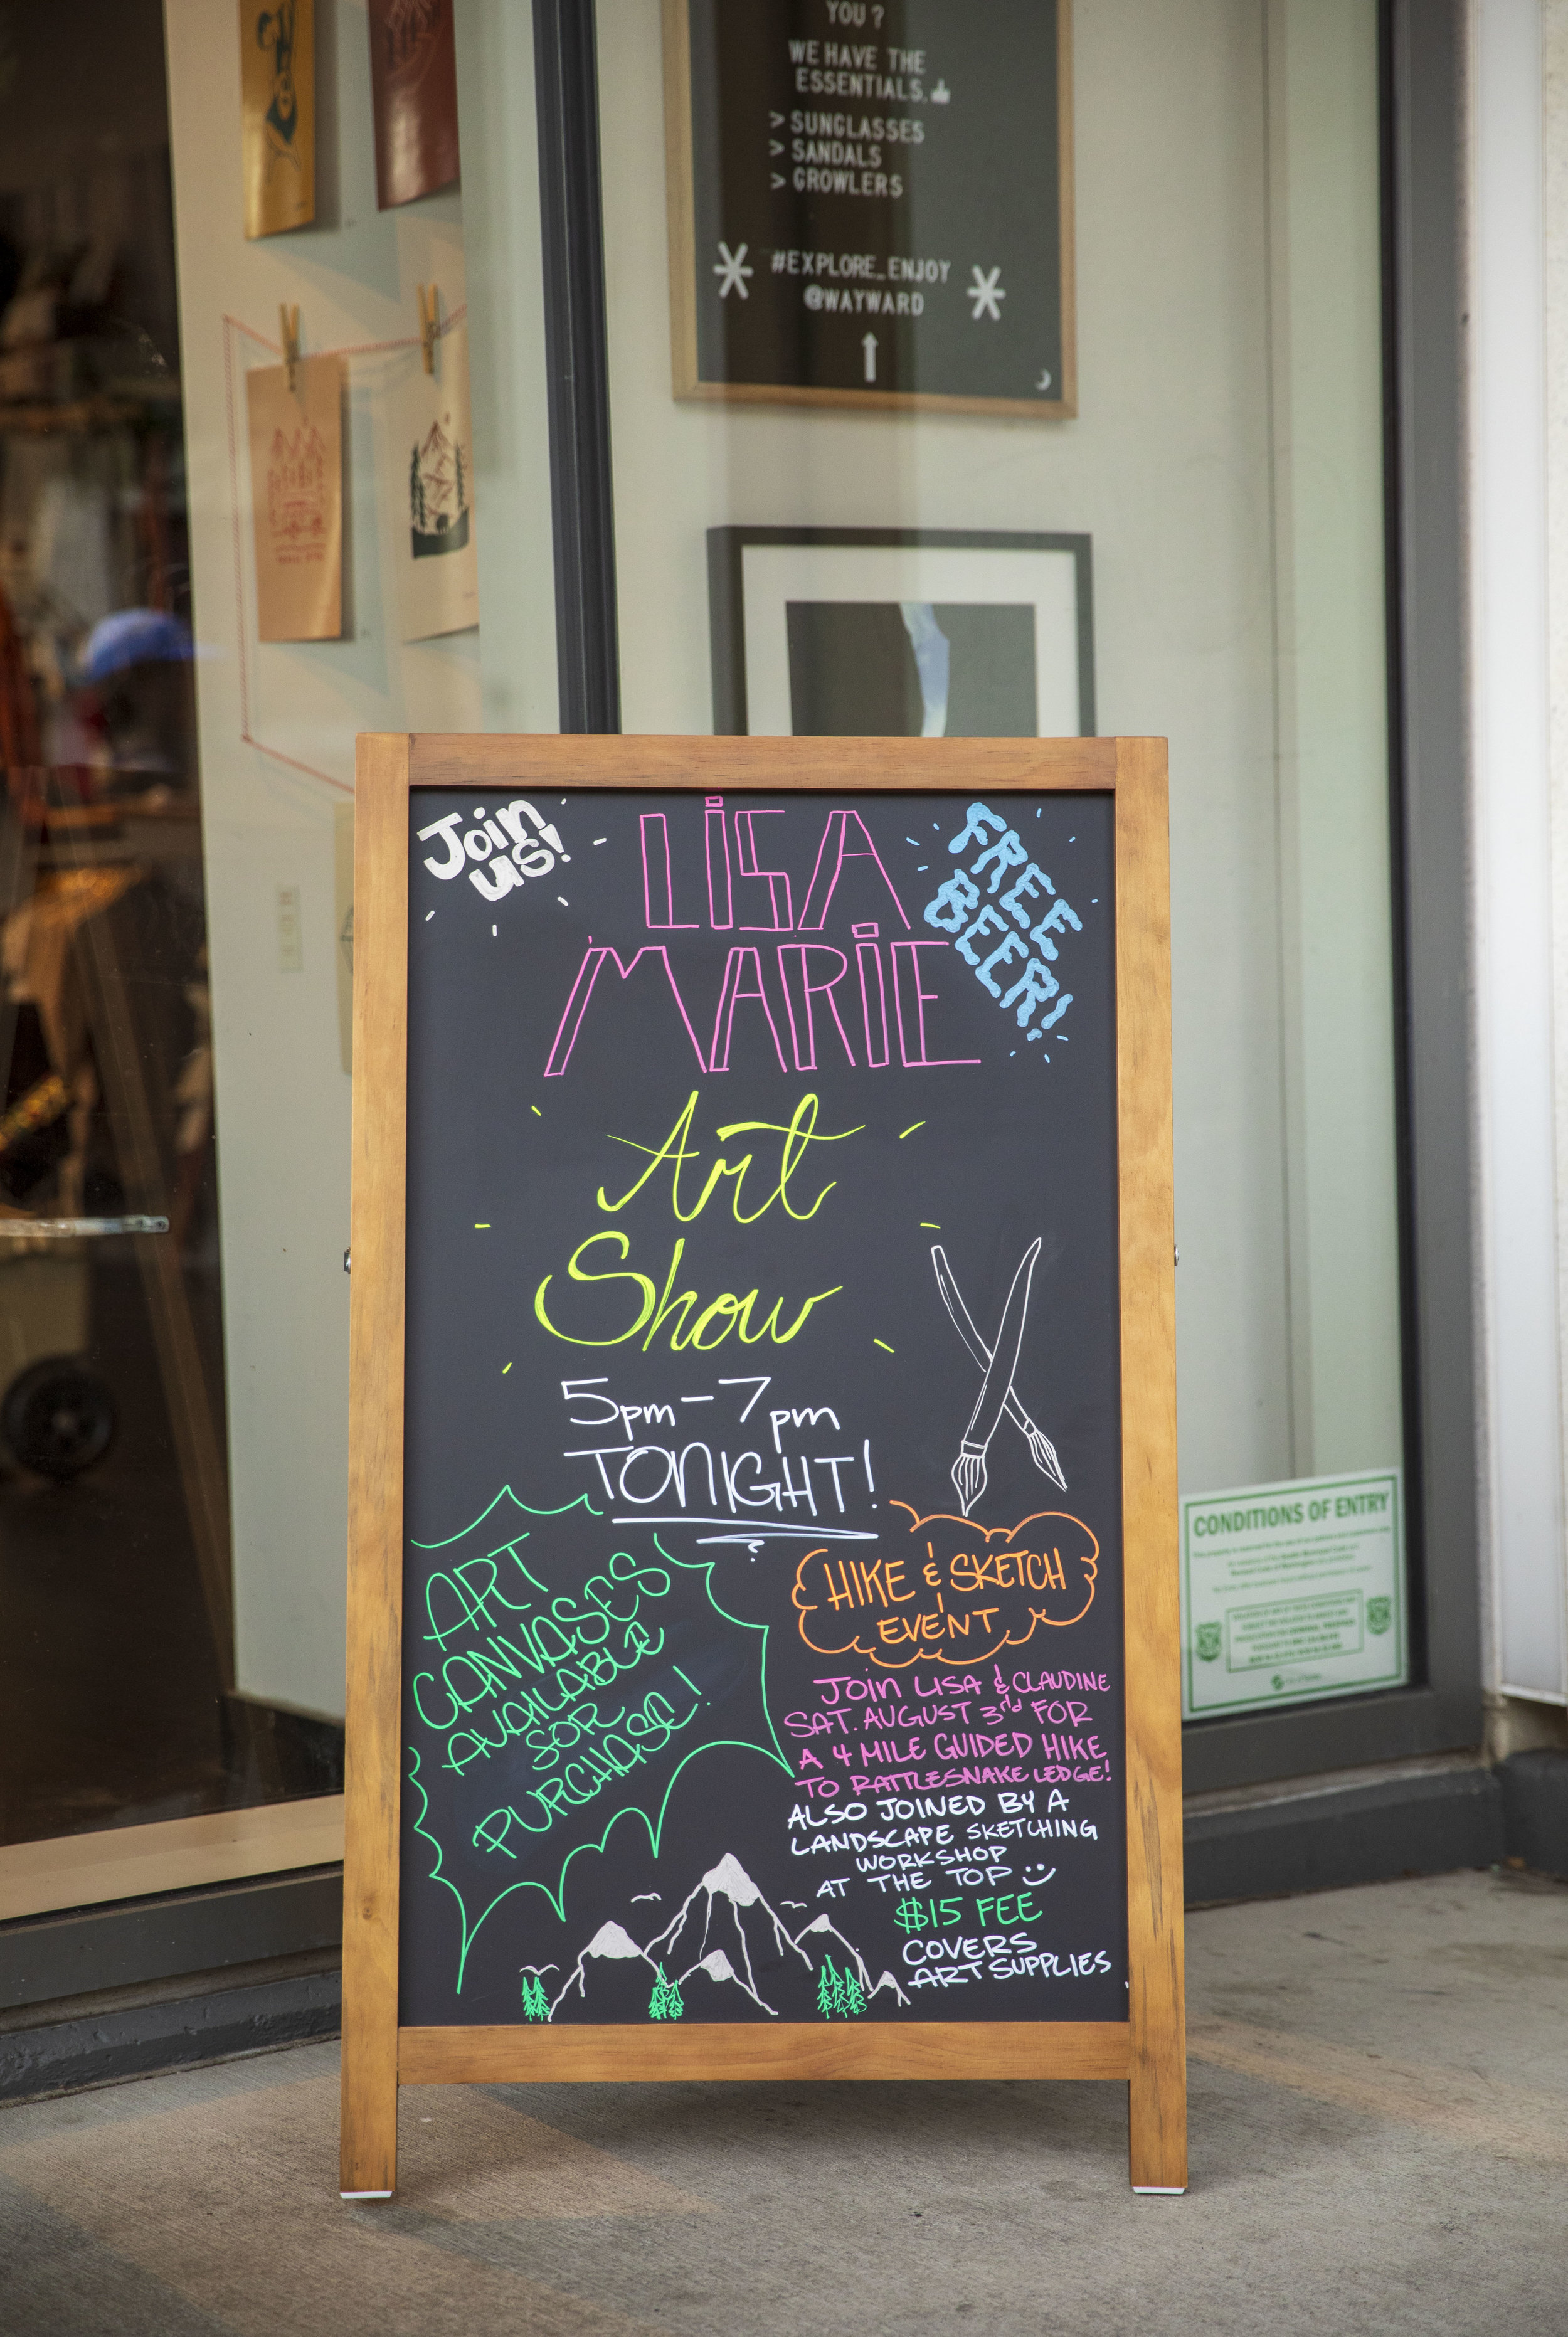 YOU?
WE HAVE THE
ESSENTIALS.
> SUNGLASSES
> SANDALS
> GROWLERS
#EXPLORE_ENJOY
@WAYWARD
Join
us!
LISA
MARIE
FREE
BEER!
Art
Show
5pm-7pm
TONIGHT!
ART
CANVASES
AVAILABLE
FOR
PURCHASE!
HIKE & SKETCH
EVENT
JOIN LISA & CLAUDINE
SAT. AUGUST 3rd FOR
A 4 MILE GUIDED HIKE
TO RATTLESNAKE LEDGE!
ALSO JOINED BY A
LANDSCAPE SKETCHING
WORKSHOP
AT THE TOP
$15 FEE
COVERS
ART SUPPLIES
CONDITIONS OF ENTRY